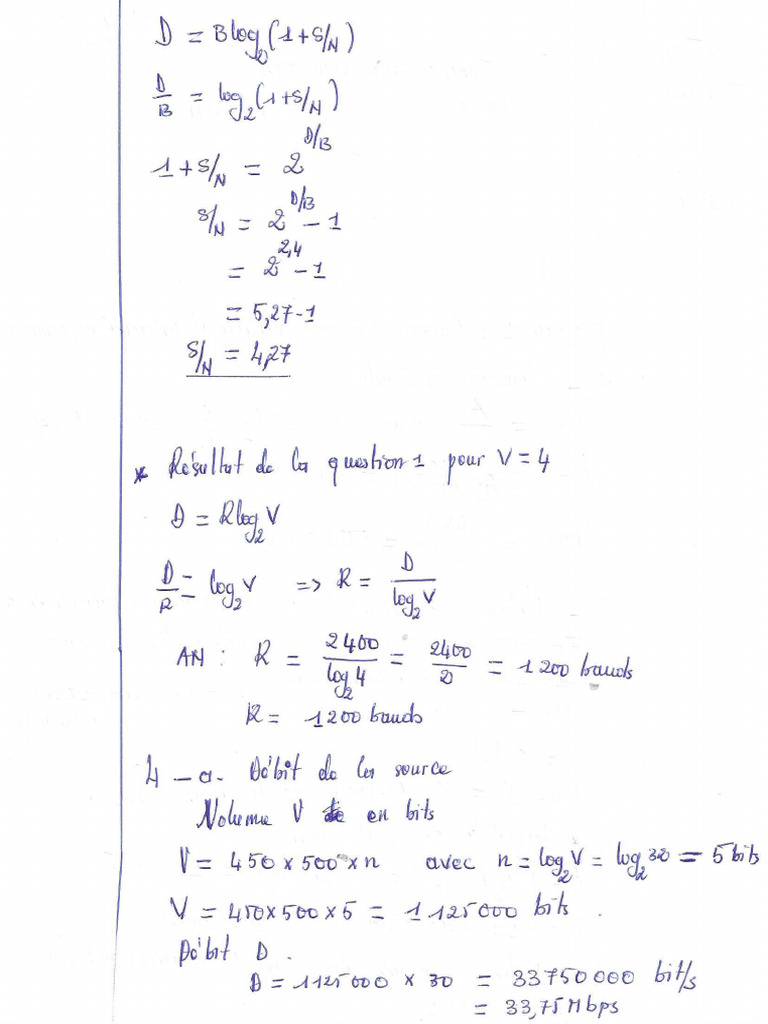 D = Blog₂(1+S/N)
D/B = log₂(1+S/N)
1+S/N = 2^(D/B)
S/N = 2^(D/B) - 1
= 2^(2,4) - 1
= 5,27-1
S/N = 4,27
* Résultat de la question 1 pour V=4
D = Rlog₂V
D/R = log₂V => R = D/log₂V
AN : R = 2400/log₂4 = 2400/2 = 1200 bauds
R = 1200 bauds
4 - a. Débit de la source
Volume V en bits
V = 450 × 500 × n avec n = log₂V = log₂32 = 5 bits
V = 450×500×5 = 1125000 bits.
Débit D.
D = 1125000 × 30 = 33750000 bit/s
= 33,75Mbps